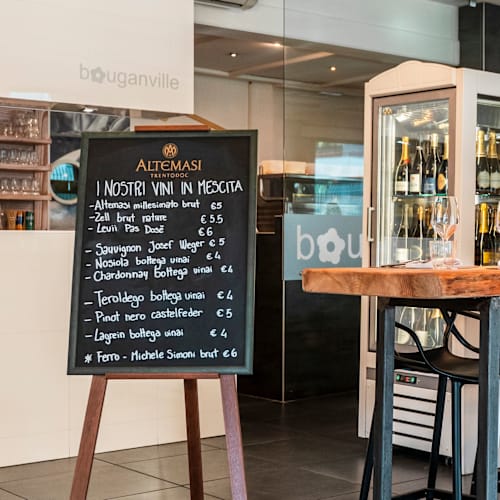 bouganville
ALTEMASI
TRENTODOC
I NOSTRI VINI IN MESCITA
- Altemasi millesimato brut €5
- Zell brut nature € 5.5
- Levii Pas Dosè € 6
- Sauvignon Josef Weger € 5
- Nosiola bottega vinai € 4
- Chardonnay bottega vinai € 4
- Teroldego bottega vinai € 4
- Pinot nero castelfeder € 5
- Lagrein bottega vinai € 4
* Ferro - Michele Simoni brut € 6
bou